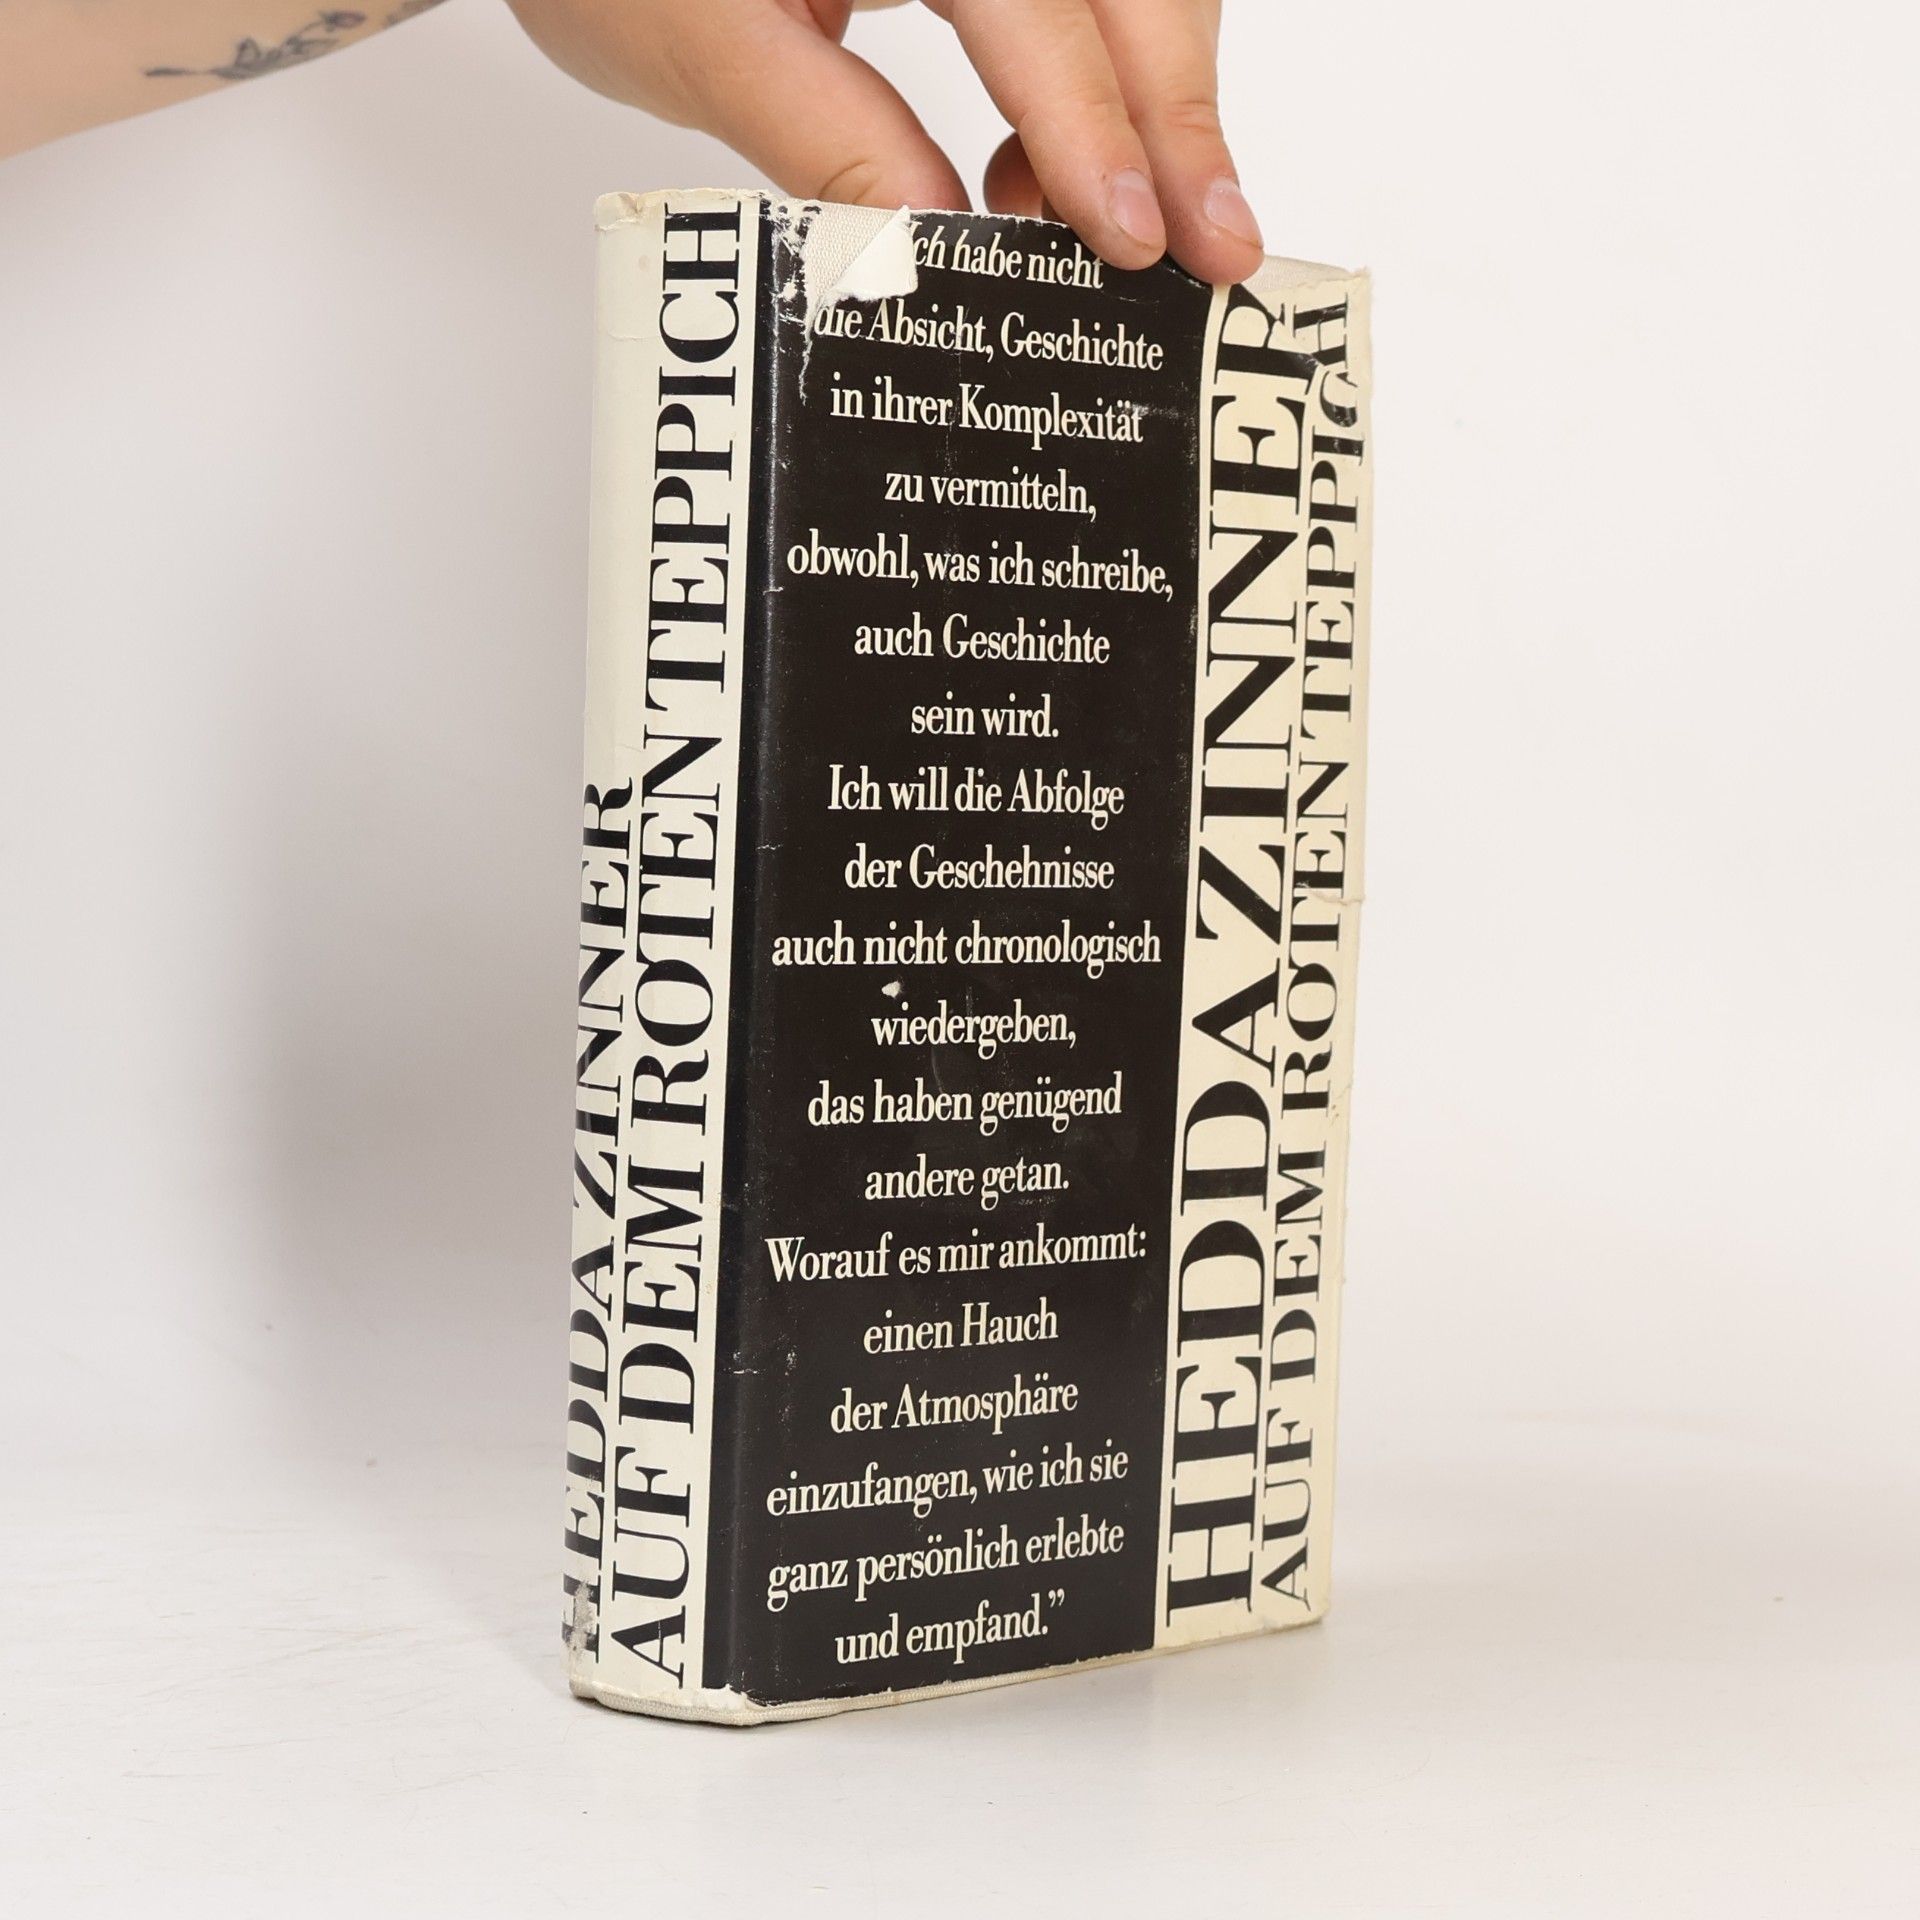 HEDDA ZINNER
AUF DEM ROTEN TEPPICH
Ich habe nicht
die Absicht, Geschichte
in ihrer Komplexität
zu vermitteln,
obwohl, was ich schreibe,
auch Geschichte
sein wird.
Ich will die Abfolge
der Geschehnisse
auch nicht chronologisch
wiedergeben,
das haben genügend
andere getan.
Worauf es mir ankommt:
einen Hauch
der Atmosphäre
einzufangen, wie ich sie
ganz persönlich erlebte
und empfand.”
HEDDA ZINNER
AUF DEM ROTEN TEPPICH